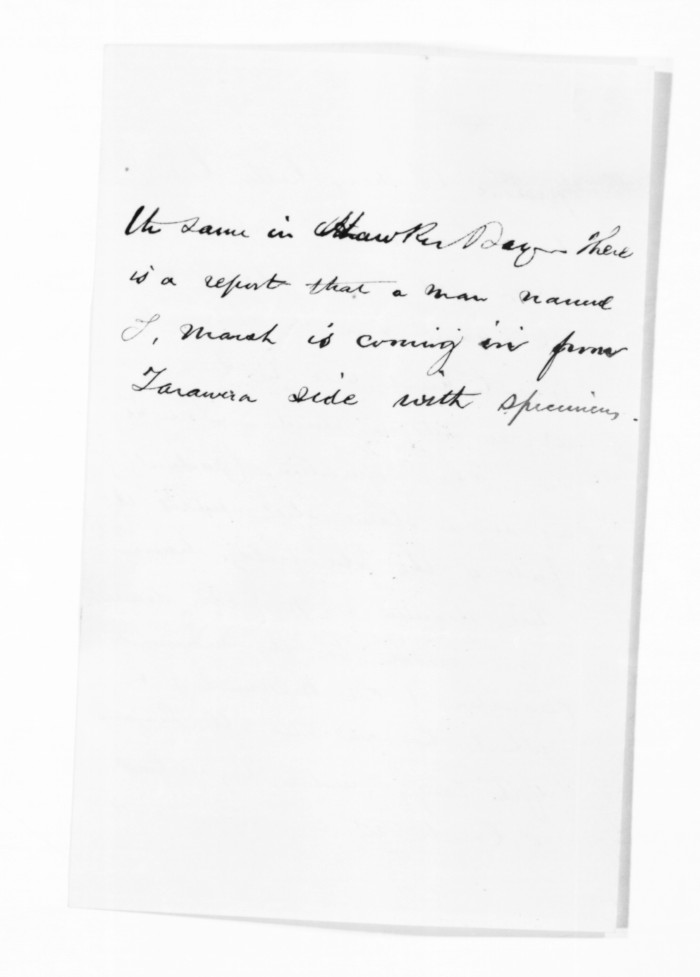 the same in Hawkes Bay – There
is a report that a man named
J, Marsh is coming in from
Tarawera side with specimens.